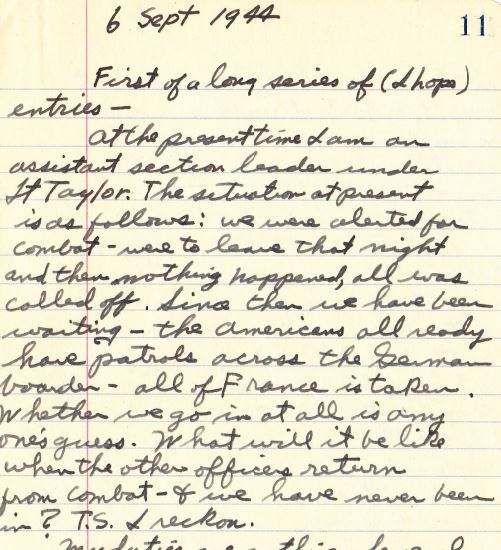 6 Sept 1944
11
First of a long series of (I hope)
entries -
At the present time I am an
assistant section leader under
Lt Taylor. The situation at present
is as follows: we were alerted for
combat - were to leave that night
and then nothing happened, all was
called off. Since then we have been
waiting - the Americans all ready
have patrols across the German
boarder - all of France is taken.
Whether we go in at all is any
one's guess. What will it be like
when the other officers return
from combat - & we have never been
in? T.S. I reckon.
My duties are